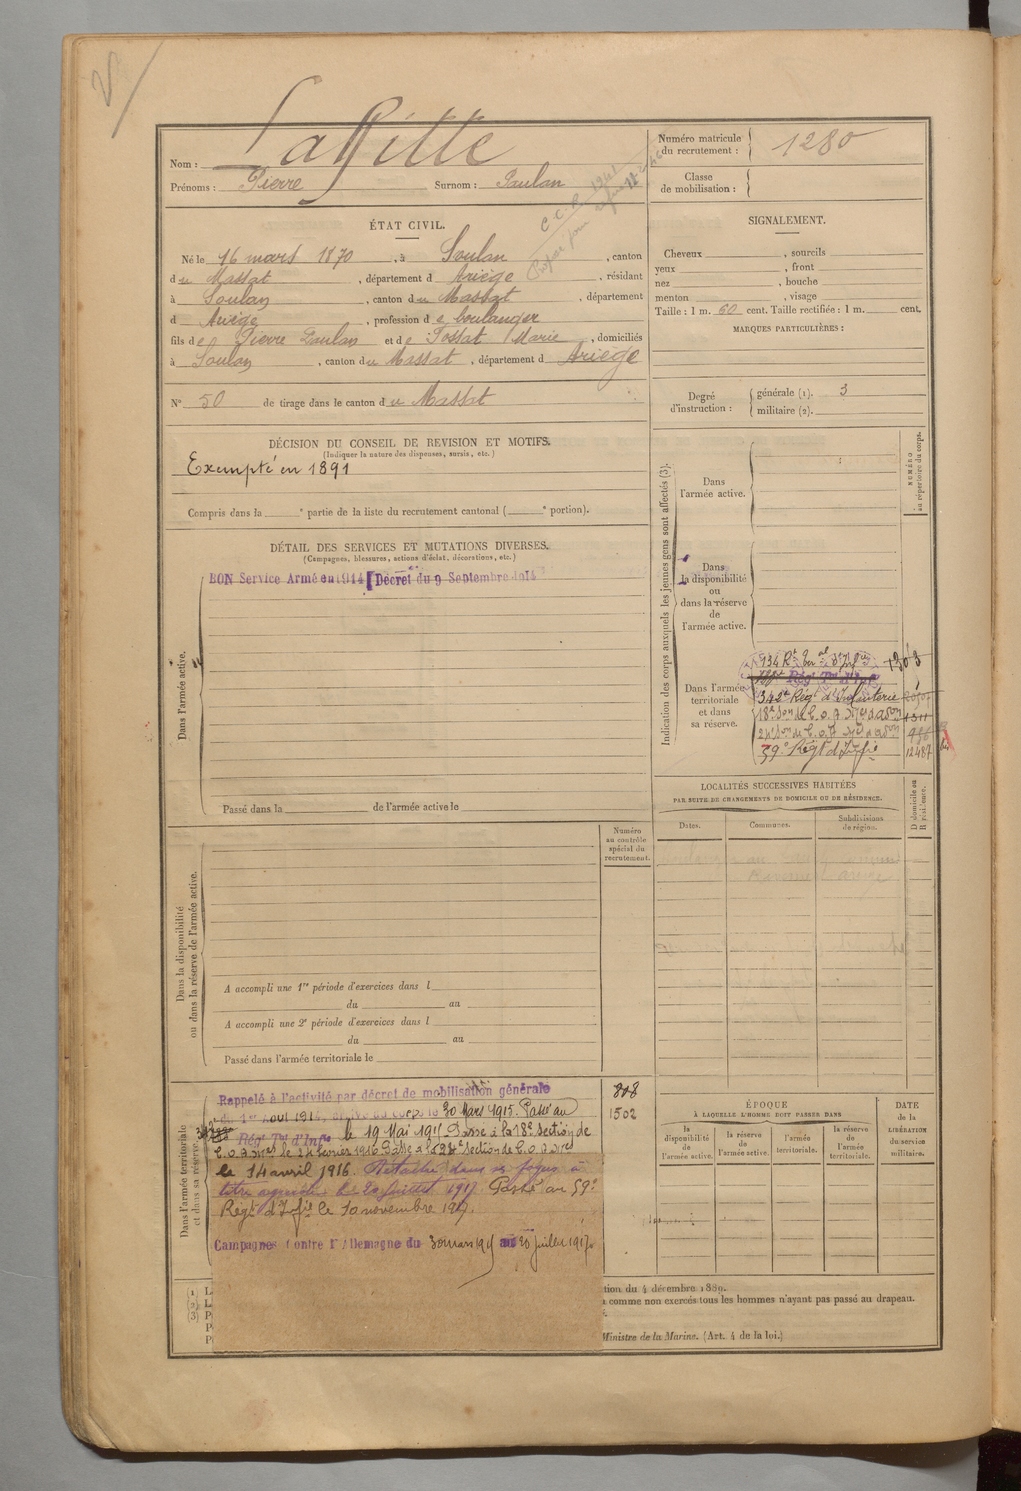 Laffitte
Nom :
Prénoms : Pierre Surnom : Paulan
Numéro matricule du recrutement : 1280
Classe de mobilisation :
ÉTAT CIVIL.
Né le 16 mars 1870, à Soulan, canton
du Massat, département d Ariège, résidant
à Soulan, canton du Massat, département
d Ariège, profession de boulanger
fils de Pierre Paulan et de Marie, domiciliés
à Soulan, canton du Massat, département d Ariège
N° 50 de tirage dans le canton du Massat
SIGNALEMENT.
Cheveux , sourcils
yeux , front
nez , bouche
menton , visage
Taille : 1 m. 60 cent. Taille rectifiée : 1 m. cent.
MARQUES PARTICULIÈRES :
Degré d'instruction : générale (1). 3
militaire (2).
DÉCISION DU CONSEIL DE REVISION ET MOTIFS.
(Indiquer la nature des dispenses, sursis, etc.)
Exempté en 1891
Compris dans la e partie de la liste du recrutement cantonal ( e portion).
DÉTAIL DES SERVICES ET MUTATIONS DIVERSES.
(Campagnes, blessures, actions d'éclat, décorations, etc.)
BON Service Armé en 1914 Décret du 9 Septembre 1914
Dans l'armée active.
Passé dans la de l'armée active le
Indication des corps auxquels les jeunes gens sont affectés (3).
NUMÉRO au répertoire du corps.
Dans l'armée active.
Dans la disponibilité ou dans la réserve de l'armée active.
Dans l'armée territoriale et dans sa réserve.
134 Rt Ter al d'Infie 1303
342e Régt d'Infanterie
18e Son de C.O.A. 1311
59e Régt d'Infie 12487
LOCALITÉS SUCCESSIVES HABITÉES
PAR SUITE DE CHANGEMENTS DE DOMICILE OU DE RÉSIDENCE.
D domicile ou R résidence.
Dates. Communes. Subdivisions de région.
Numéro au contrôle spécial du recrutement.
Dans la disponibilité ou dans la réserve de l'armée active.
A accompli une 1re période d'exercices dans l
du au
A accompli une 2e période d'exercices dans l
du au
Passé dans l'armée territoriale le
Dans l'armée territoriale et dans sa réserve
Rappelé à l'activité par décret de mobilisation générale 808
du 1er Août 1914, arrivé au corps le 30 Mars 1915. Passé au 1502
Régt Tal d'Infie le 19 Mai 1915 Passé à la 18e Section de
C.O.A. le 24 février 1916 Passé à la 24e section de C.O.A.
le 14 avril 1916. Détaché dans ses foyers à
titre agricole le 20 Juillet 1917. Passé au 59e
Régt d'Infie le 10 novembre 1917.
Campagnes Contre l'Allemagne du 30 mars 1915 au 20 juillet 1917
ÉPOQUE
À LAQUELLE L'HOMME DOIT PASSER DANS
la disponibilité de l'armée active. la réserve de l'armée active. l'armée territoriale. la réserve de l'armée territoriale.
DATE de la LIBÉRATION du service militaire.
tion du 4 décembre 1889.
comme non exercés tous les hommes n'ayant pas passé au drapeau.
Ministre de la Marine. (Art. 4 de la loi.)